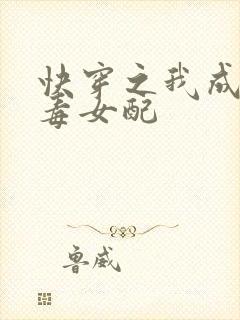 快穿之我成
毒女配
鲁威